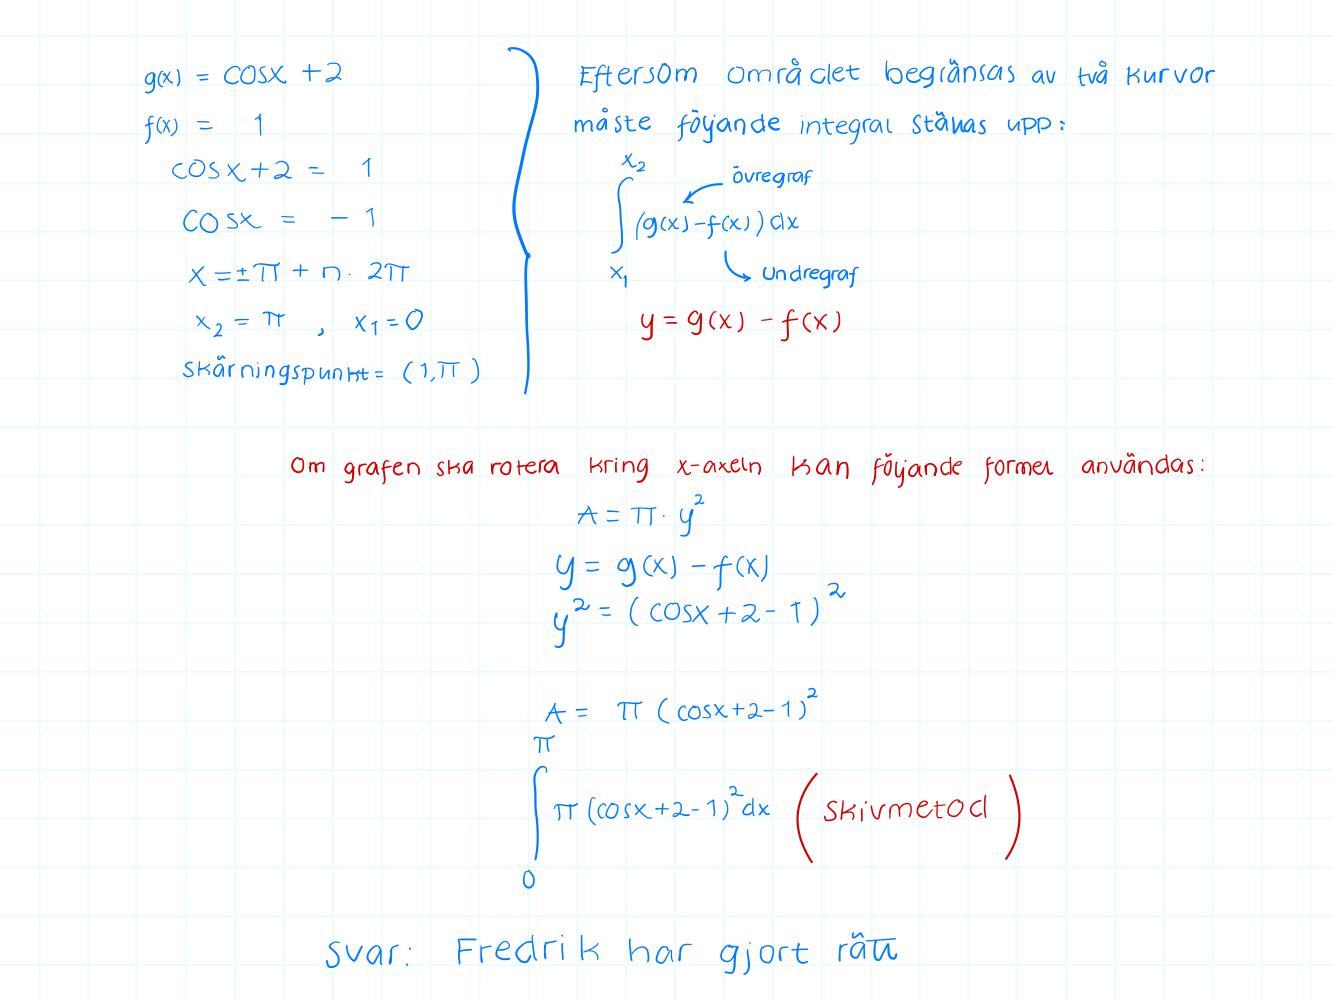 g(x) = cosx +2
f(x) = 1
cosx+2 = 1
cosx = -1
x = ±π + n· 2π
x₂ = π , x₁ = 0
skärningspunkt = (1,π)
Eftersom området begränsas av två kurvor
måste följande integral ställas upp:
x₂
övregraf
∫ (g(x)-f(x)) dx
x₁
undregraf
y = g(x) - f(x)
Om grafen ska rotera kring x-axeln kan följande formel användas:
A = π· y²
y = g(x) - f(x)
y² = (cosx+2-1)²
A = π (cosx+2-1)²
π
∫ π (cosx+2-1)² dx (skivmetod)
0
svar: Fredrik har gjort rätt